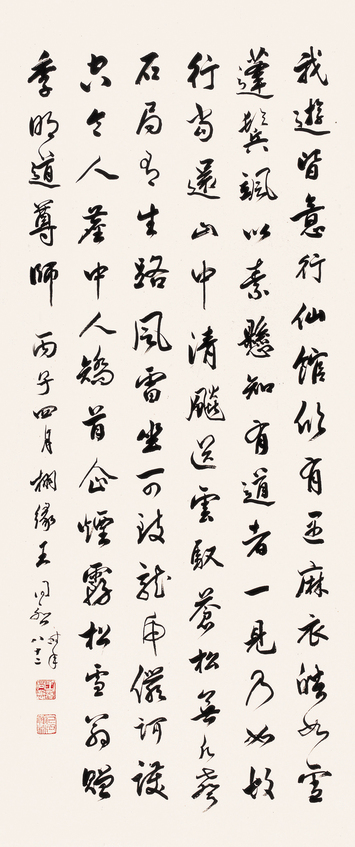 我遊皆意行仙館似有遇麻衣皓如雪
蓬鬢颯以素懸知有道者一見乃如故
行當還山中清飈送雲馭蒼松無凡
石局有生路風雷坐可致龍虎儼訶護
空令人塵中人矯首企煙霧松雪翁贈
季明道尊師 丙子四月栩緣王同愈時年八十二